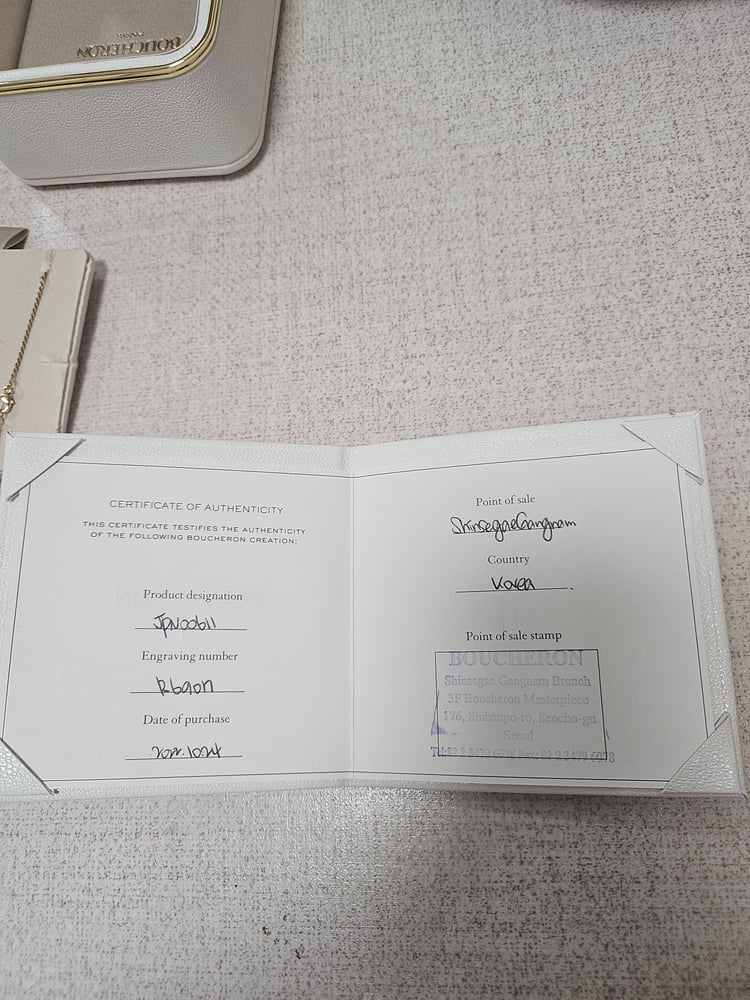 BOUCHERON
PARIS
CERTIFICATE OF AUTHENTICITY
THIS CERTIFICATE TESTIFIES THE AUTHENTICITY
OF THE FOLLOWING BOUCHERON CREATION:
Product designation
JPN00611
Engraving number
Date of purchase
2022.10.24
Point of sale
ShinsegaeGangnam
Country
Korea
Point of sale stamp
BOUCHERON
Shinsegae Gangnam Branch
3F Boucheron Masterpiece
176, Sinbanpo-ro, Seocho-gu
Seoul
Tel:82 2 3479 6028 Fax: 82 2 3479 6078